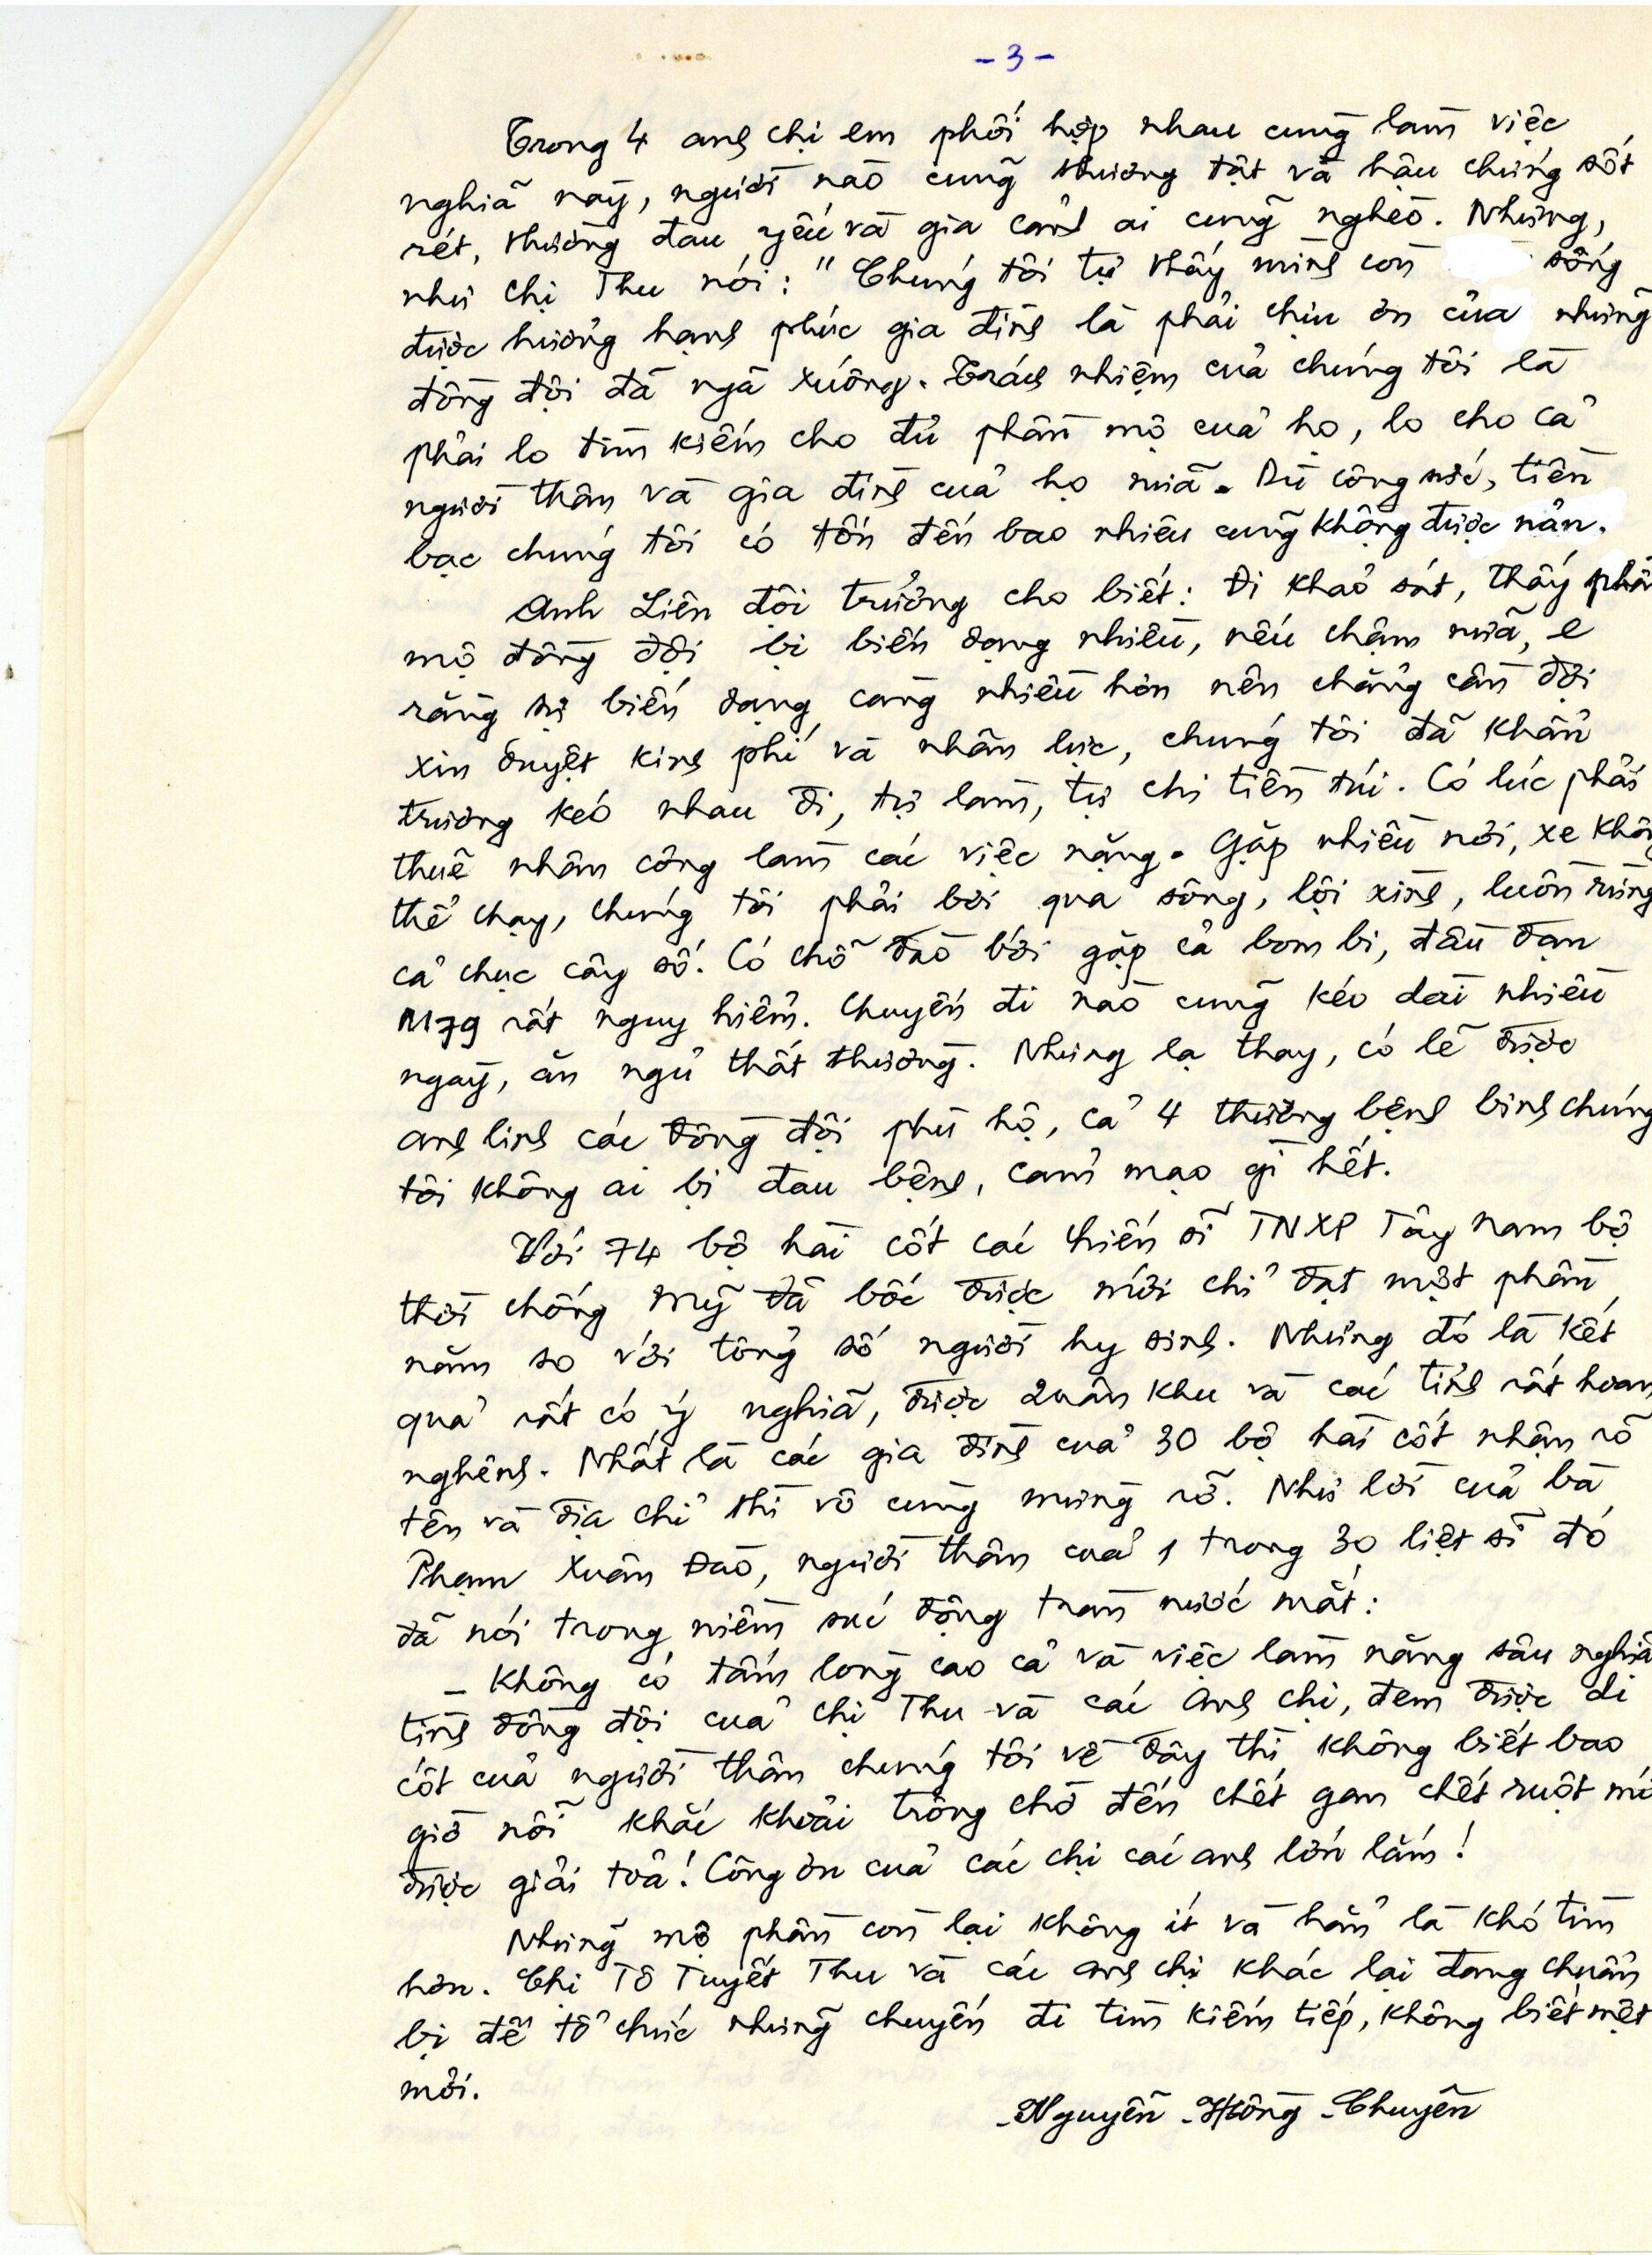 - 3 -
Trong 4 anh chị em phối hợp nhau cùng làm việc
nghĩa này, người nào cũng thương tật và hậu chứng sốt
rét, thường đau yếu và gia cảnh ai cũng nghèo. Nhưng,
như chị Thu nói: "Chúng tôi tự thấy mình còn sống
được hưởng hạnh phúc gia đình là phải chịu ơn của những
đồng đội đã ngã xuống. Trách nhiệm của chúng tôi là
phải lo tìm kiếm cho đủ phần mộ của họ, lo cho cả
người thân và gia đình của họ nữa. Dù công sức, tiền
bạc chúng tôi có tốn đến bao nhiêu cũng không được nản.
Anh Liên đội trưởng cho biết: Đi khảo sát, thấy phần
mộ đồng đội bị biến dạng nhiều, nếu chậm nữa, e
rằng sự biến dạng càng nhiều hơn nên chẳng cần đợi
xin duyệt kinh phí và nhân lực, chúng tôi đã khẩn
trương kéo nhau đi, tự làm, tự chi tiền túi. Có lúc phải
thuê nhân công làm các việc nặng. Gặp nhiều nơi, xe không
thể chạy, chúng tôi phải bơi qua sông, lội xình, luồn rừng
cả chục cây số. Có chỗ đào bới gặp cả bom bi, đầu đạn
M79 rất nguy hiểm. Chuyến đi nào cũng kéo dài nhiều
ngày, ăn ngủ thất thường. Nhưng lạ thay, có lẽ được
anh linh các đồng đội phù hộ, cả 4 thương bệnh binh chúng
tôi không ai bị đau bệnh, cảm mạo gì hết.
Với 74 bộ hài cốt các chiến sĩ TNXP Tây Nam bộ
thời chống Mỹ đã bốc được mới chỉ đạt một phần
năm so với tổng số người hy sinh. Nhưng đó là kết
quả rất có ý nghĩa, được Quân khu và các tỉnh rất hoan
nghênh. Nhất là các gia đình của 30 bộ hài cốt nhận rõ
tên và địa chỉ thì vô cùng mừng rỡ. Như lời của bà
Phạm Xuân Đào, người thân của 1 trong 30 liệt sĩ đó
đã nói trong niềm xúc động tràn nước mắt:
- Không có tấm lòng cao cả và việc làm nặng sâu nghĩa
tình đồng đội của chị Thu và các anh chị, đem được di
cốt của người thân chúng tôi về đây thì không biết bao
giờ nỗi khắc khoải trông chờ đến chết gan chết ruột mới
được giải toả! Công ơn của các chị các anh lớn lắm!
Nhưng mộ phần còn lại không ít và hẳn là khó tìm
hơn. Chị Tô Tuyết Thu và các anh chị khác lại đang chuẩn
bị để tổ chức những chuyến đi tìm kiếm tiếp, không biết mệt
mỏi.
Nguyễn Hồng Chuyên